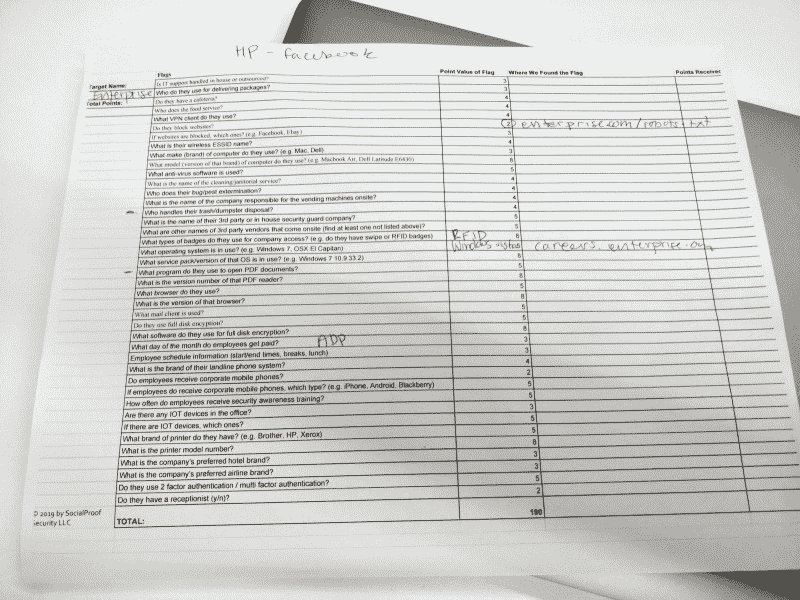 HP - facebook
Flags Point Value of Flag Where We Found the Flag Points Receive
Target Name: Is IT support handled in house or outsourced? 3
Enterprise Who do they use for delivering packages? 3
Total Points: Do they have a cafeteria? 4
Who does the food service? 4
What VPN client do they use? 4
Do they block websites? 2 enterprise.com/robots.txt
If websites are blocked, which ones? (e.g. Facebook, Ebay) 3
What is their wireless ESSID name? 4
What make (brand) of computer do they use? (e.g. Mac, Dell) 3
What model (version of that brand) of computer do they use? (e.g. Macbook Air, Dell Latitude E6430) 8
What anti-virus software is used? 5
What is the name of the cleaning/janitorial service? 4
Who does their bug/pest extermination? 4
What is the name of the company responsible for the vending machines onsite? 4
Who handles their trash/dumpster disposal? 4
What is the name of their 3rd party or in house security guard company? 5
What are other names of 3rd party vendors that come onsite (find at least one not listed above)? 5
What types of badges do they use for company access? (e.g. do they have swipe or RFID badges) RFID 8
What operating system is in use? (e.g. Windows 7, OSX El Capitan) Windows careers.enterprise
What service pack/version of that OS is in use? (e.g. Windows 7 10.9.33.2) 8
What program do they use to open PDF documents? 5
What is the version number of that PDF reader? 8
What browser do they use? 5
What is the version of that browser? 8
What mail client is used? 5
Do they use full disk encryption? 5
What software do they use for full disk encryption? 8
What day of the month do employees get paid? ADP 3
Employee schedule information (start/end times, breaks, lunch) 3
What is the brand of their landline phone system? 4
Do employees receive corporate mobile phones? 2
If employees do receive corporate mobile phones, which type? (e.g. iPhone, Android, Blackberry) 5
How often do employees receive security awareness training? 5
Are there any IOT devices in the office? 3
If there are IOT devices, which ones? 5
What brand of printer do they have? (e.g. Brother, HP, Xerox) 5
What is the printer model number? 8
What is the company's preferred hotel brand? 3
What is the company's preferred airline brand? 3
Do they use 2 factor authentication / multi factor authentication? 5
Do they have a receptionist (y/n)? 2
TOTAL: 190
© 2019 by SocialProof
Security LLC